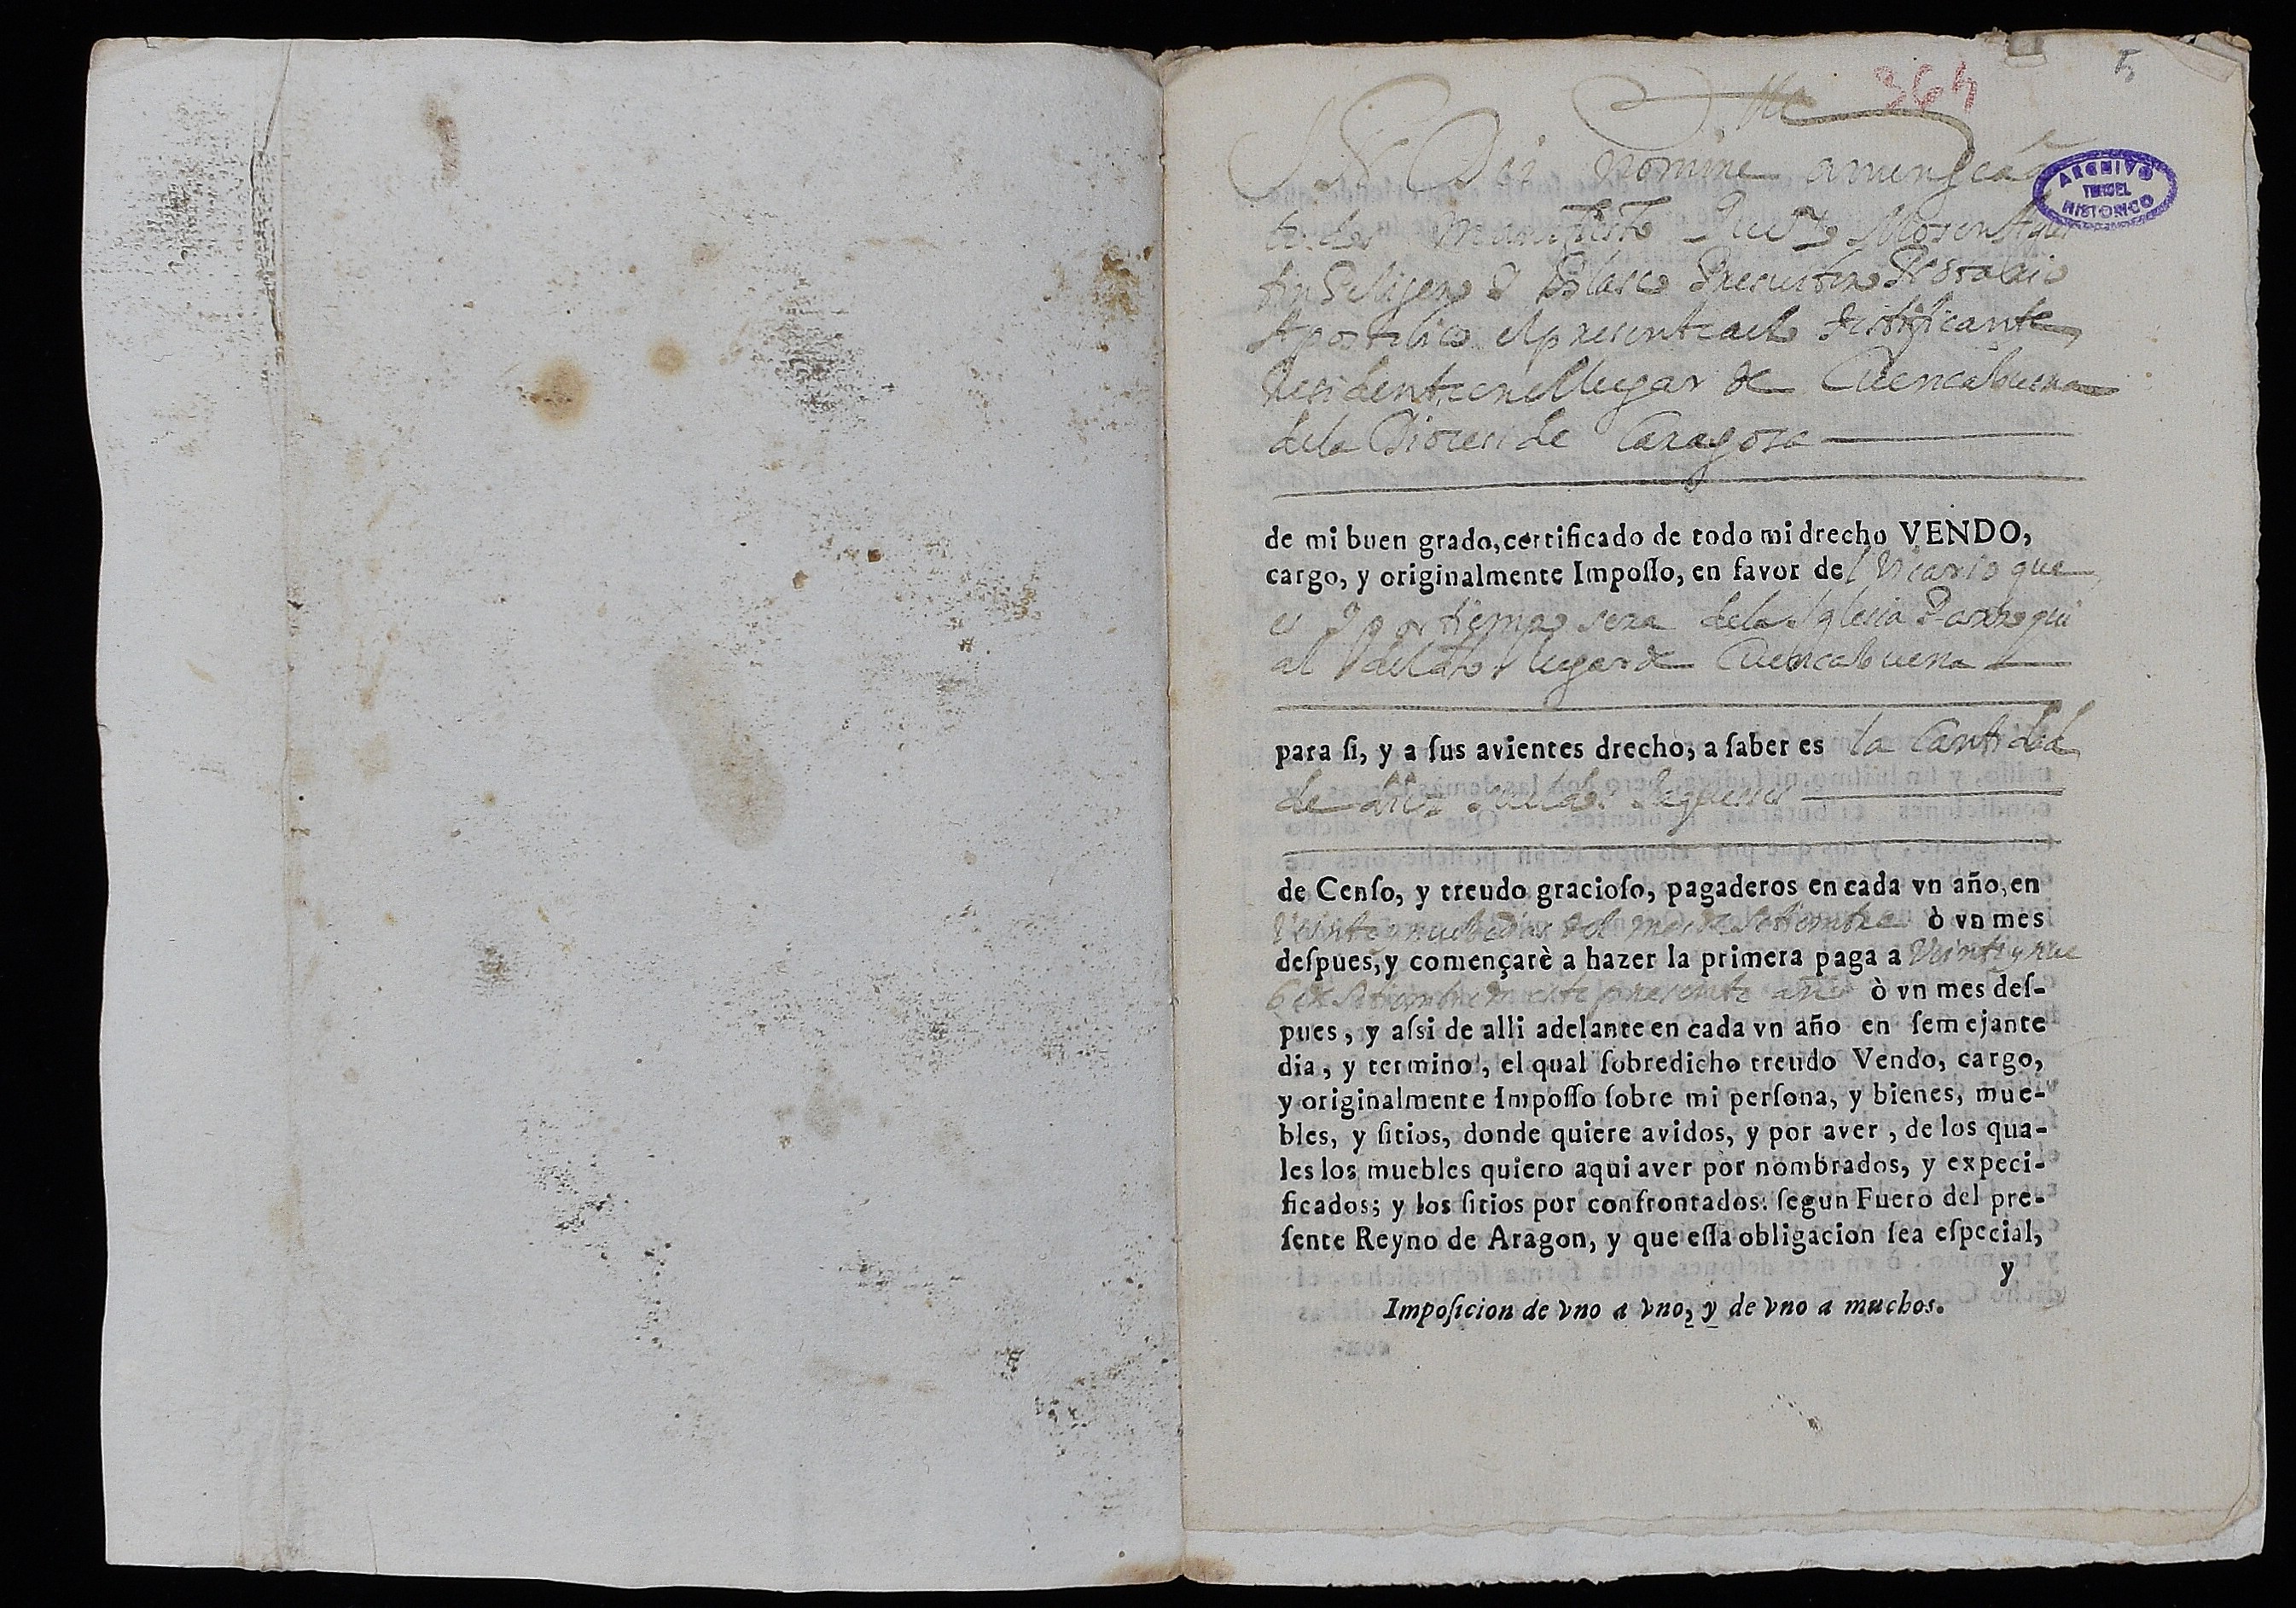 364
Dei nomine amen sea a
todos manifiesto que yo Mosen Agus
tin de Presvitero Notario
Apostolico el presente acto testificante
residente en el lugar de Cuencabuena
de la Diocesi de Caragoza
ARCHIVO
TERUEL
HISTORICO
de mi buen grado, certificado de todo mi drecho VENDO,
cargo, y originalmente Impoſſo, en favor de l Vicario que
es y por tiempo sera de la Iglesia Parroqui
al del dho lugar de Cuencabuena
para ſi, y a ſus avientes drecho, a ſaber es la Cantidad
de diez sueldos Jaqueses
de Cenſo, y treudo gracioſo, pagaderos en cada vn año, en
Veinte y nuebe dias del mes de Setiembre ò vn mes
deſpues, y començarè a hazer la primera paga a Veinte y nue
be de Setiembre de este presente año ò vn mes deſ-
pues, y aſsi de alli adelante en cada vn año en ſemejante
dia, y termino, el qual ſobredicho treudo Vendo, cargo,
y originalmente Impoſſo ſobre mi perſona, y bienes, mue-
bles, y ſitios, donde quiere avidos, y por aver, de los qua-
les los muebles quiero aqui aver por nombrados, y expeci-
ficados; y los ſitios por confrontados: ſegun Fuero del pre-
ſente Reyno de Aragon, y que eſſa obligacion ſea eſpecial,
y
Impoſicion de vno a vno, y de vno a muchos.